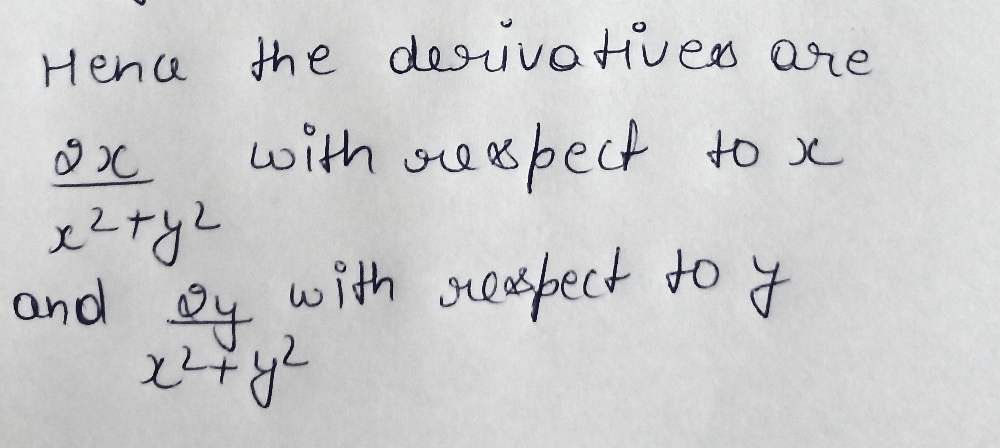 Hence the derivatives are
2x/(x²+y²) with respect to x
and 2y/(x²+y²) with respect to y